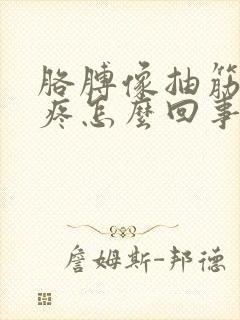 胳膊像抽筋
疼怎麽回事
詹姆斯-邦德